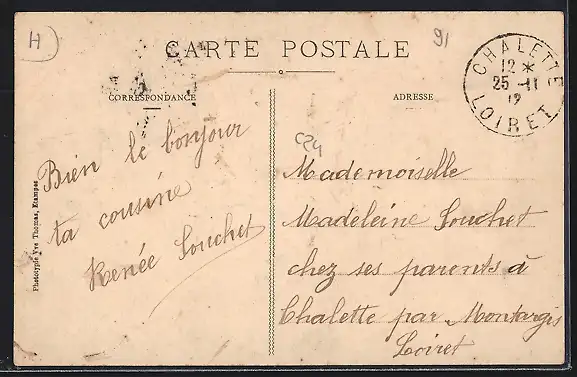 H
91
CARTE POSTALE
CHALETTE
12 *
25 -11
12
LOIRET
CORRESPONDANCE
ADRESSE
C24
Bien le bonjour
ta cousine
Renée Souchet
Mademoiselle
Madeleine Souchet
chez ses parents à
Chalette par Montargis
Loiret
Phototypie Vve Thomas, Etampes